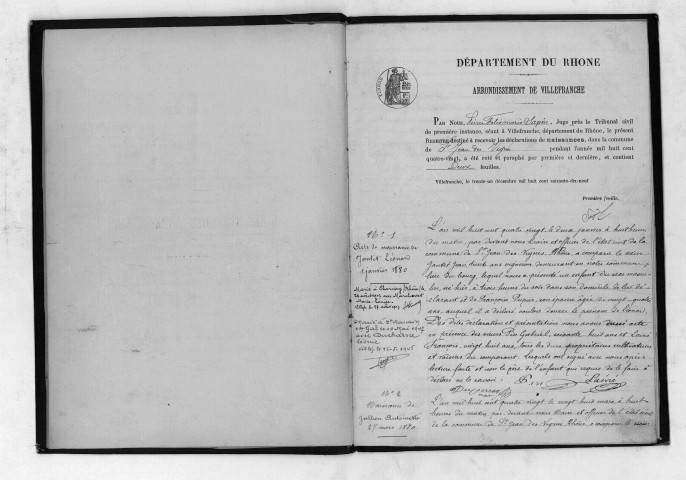 DÉPARTEMENT DU RHONE
ARRONDISSEMENT DE VILLEFRANCHE
PAR NOUS, Juge près le Tribunal civil
de première instance, séant à Villefranche, département du Rhône, le présent
REGISTRE destiné à recevoir les déclarations de naissances, dans la commune
de St Jean des Vignes pendant l'année mil huit cent
quatre-vingt, a été coté et paraphé par première et dernière, et contient
Deux feuilles.
Villefranche, le trente-un décembre mil huit cent soixante-dix-neuf
Première feuille,
No 1
Acte de naissance de
Jontet Léonard
1 janvier 1880
Marié à
L'an mil huit cent quatre vingt le deux janvier à huit heures
du matin, par devant nous maire et officier de l'état civil de la
commune de St Jean des Vignes, Rhône, a comparu le sieur
Jontet Jean, trente ans vigneron demeurant en notre commune
lieu du bourg, lequel nous a présenté un enfant du sexe mascu-
lin, né hier, à trois heures du soir dans son domicile, de lui dé-
clarant et de Françoise Dupier, son épouse âgée de vingt quatre
ans, auquel il a déclaré vouloir donner le prénom de Léonard.
Les dites déclaration et présentation nous avons dressé acte
en présence des sieurs Pin Gabriel, soixante huit ans et Lièvre
François, vingt huit ans, tous les deux propriétaires cultivateurs
et voisins du comparant. Lesquels ont signé avec nous après
lecture faite et non le père de l'enfant qui requis de le faire a
déclaré ne le savoir.
Pin Lièvre
No 2
Naissance de
Jullien Antoinette
27 mars 1880
L'an mil huit cent quatre vingt le vingt huit mars à huit
heures du matin par devant nous Maire et officier de l'état civil
de la commune de St Jean des Vignes Rhône a comparu le sieur